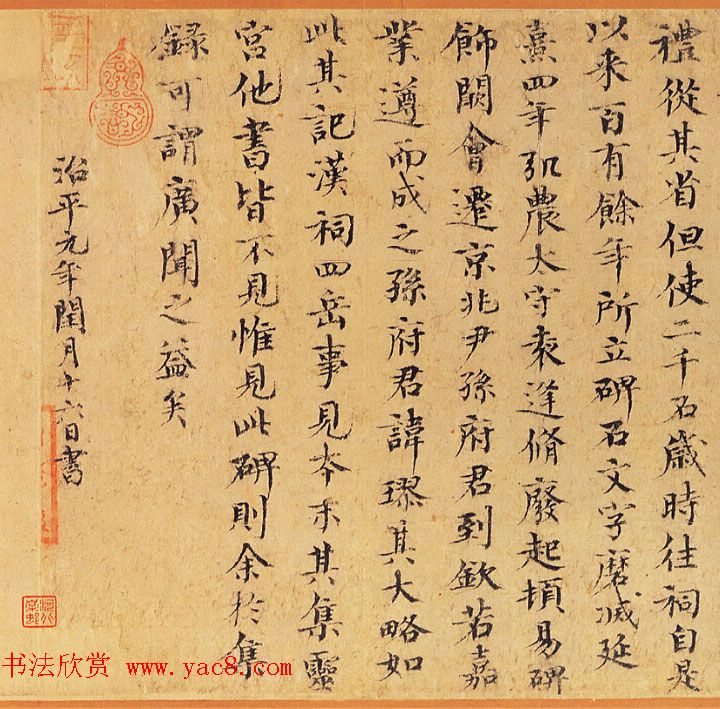 禮從其省但使二千石歲時往祠自是
以来百有餘年所立碑石文字磨滅延
熹四年弘農太守袁逢脩廢起頓易碑
飾闕會遷京兆尹孫府君到欽若嘉
業遵而成之孫府君諱璆其大略如
此其記漢祠四岳事見本末其集靈
宫他書皆不見惟見此碑則余於集
録可謂廣聞之益矣
治平元年閏月十六日書
书法欣赏 www.yac8.com